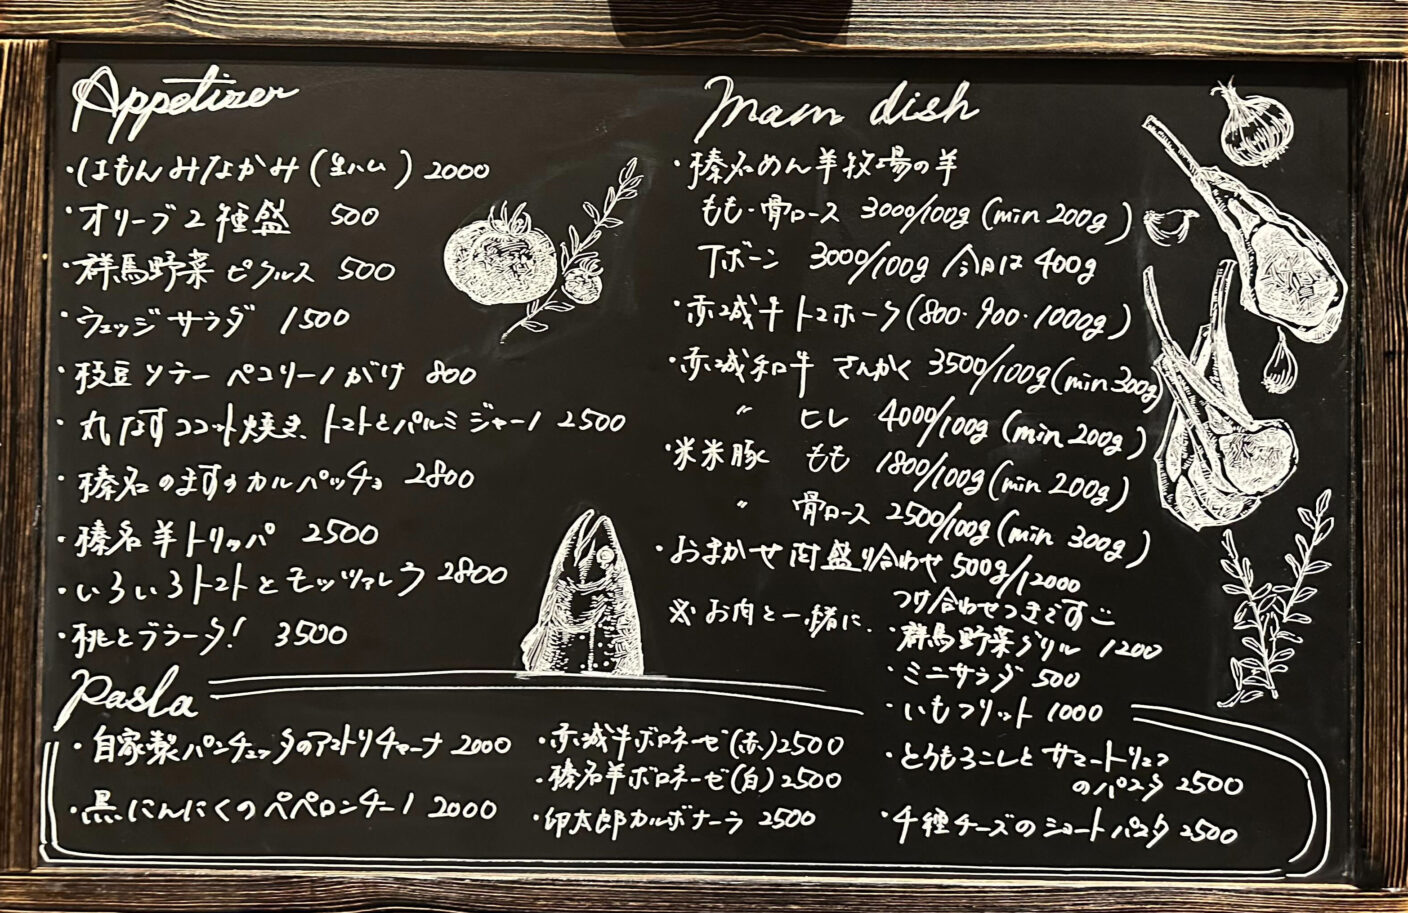 Appetizer
・はもんみなかみ(生ハム) 2000
・オリーブ2種盛 500
・群馬野菜ピクルス 500
・ウェッジサラダ 1500
・枝豆ソテー ペコリーノがけ 800
・丸なすココット焼き、トマトとパルミジャーノ 2500
・榛名のますのカルパッチョ 2800
・榛名羊トリッパ 2500
・いろいろトマトとモッツァレラ 2800
・桃とブラータ! 3500
Main dish
・榛名めん羊牧場の羊
もも・骨ロース 3000/100g (min 200g)
Tボーン 3000/100g 今日は400g
・赤城牛トマホーク(800・900・1000g)
・赤城和牛 さんかく 3500/100g(min 300g)
〃 ヒレ 4000/100g (min 200g)
・米米豚 もも 1800/100g(min 200g)
〃 骨ロース 2500/100g(min 300g)
・おまかせ肉盛り合わせ 500g/12000
つけ合わせつきですご
※お肉と一緒に、
・群馬野菜グリル 1200
・ミニサラダ 500
・いもフリット 1000
Pasta
・自家製パンチェッタのアマトリチャーナ 2000
・黒にんにくのペペロンチーノ 2000
・赤城牛ボロネーゼ(赤) 2500
・榛名羊ボロネーゼ(白) 2500
・卵太郎カルボナーラ 2500
・とうもろこしとサマートリュフ
のパスタ 2500
・4種チーズのショートパスタ 2500